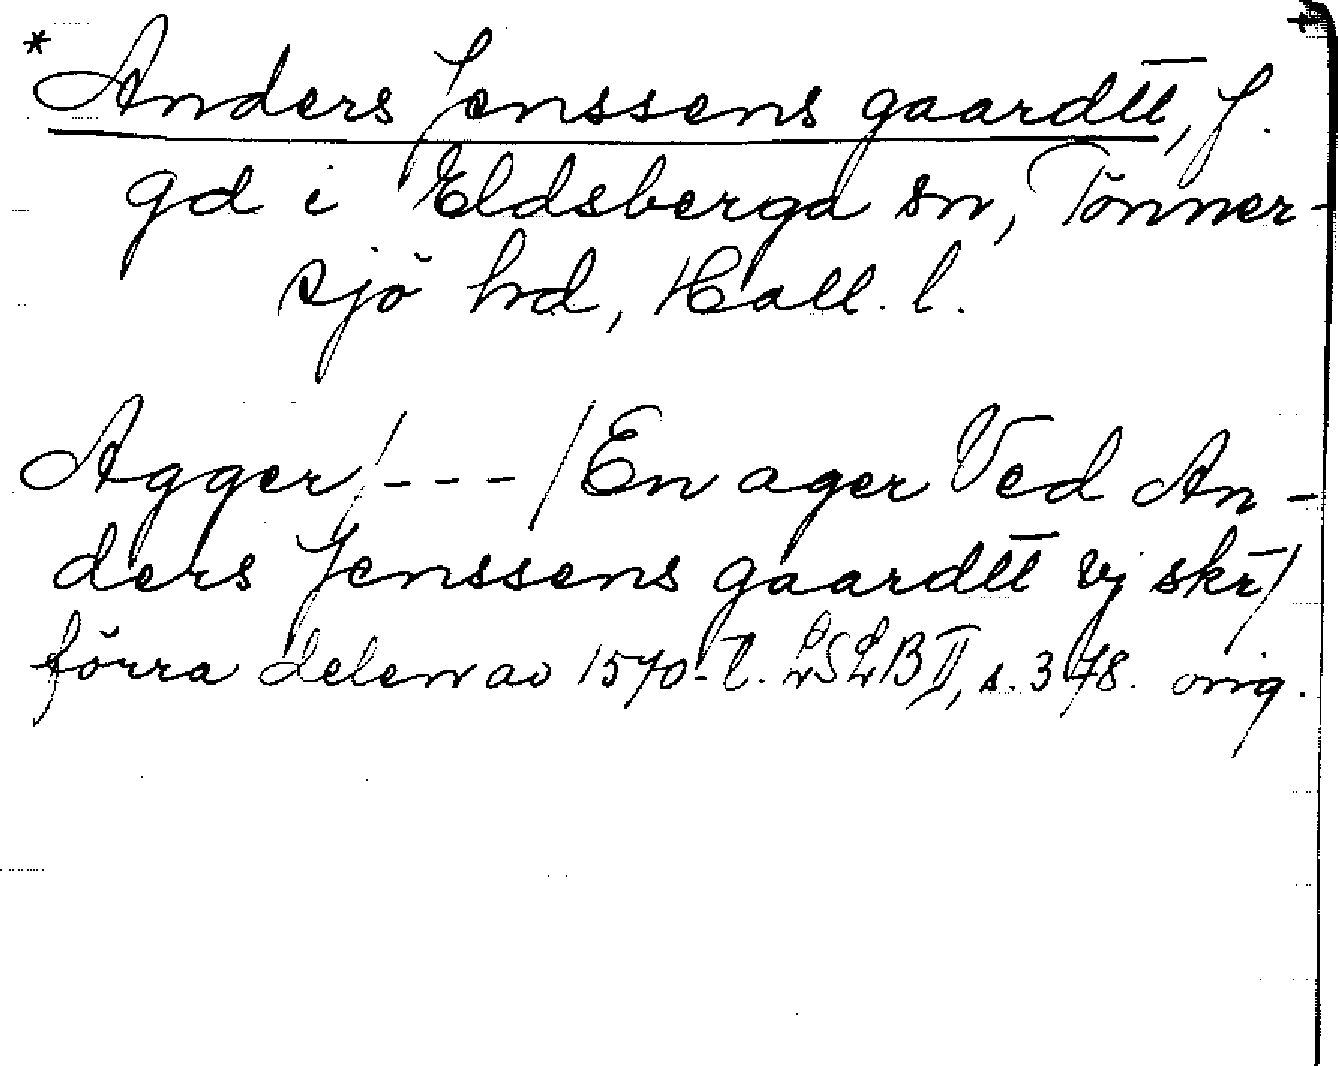 * Anders Jenssens gaardtt, f.
gd i Eldsberga sn, Tönner-
sjö hd, Hall. l.
Agger/---/En ager Ved An-
ders Jenssens gaardtt vj skr/
förra delen av 1570-t. LSLB II, s. 378. orig.